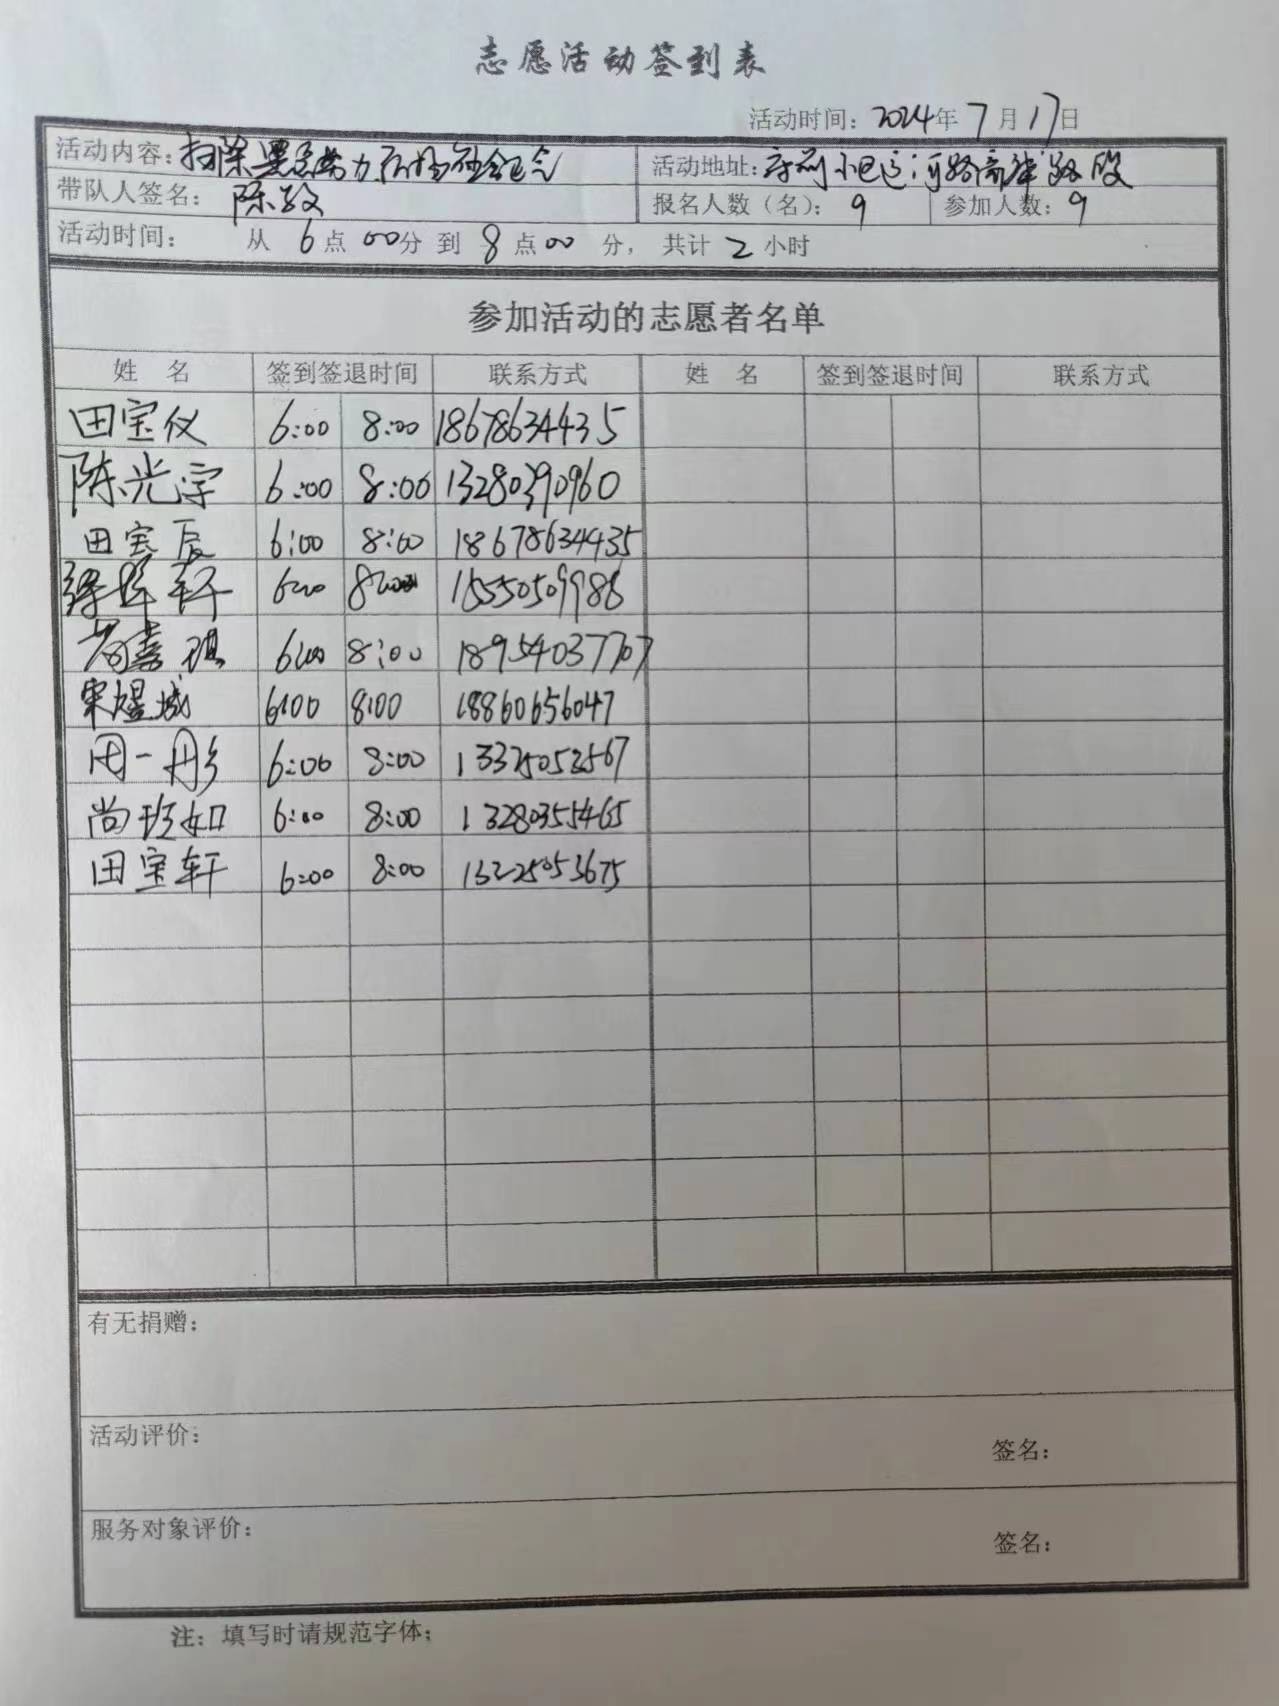 志愿活动签到表
活动时间：2024年7月17日
活动内容：扫除黑恶势力 弘扬社会正气 活动地址：
带队人签名：陈 报名人数（名）：9 参加人数：9
活动时间： 从 6 点 00分 到 8 点 00 分，共计 2 小时
参加活动的志愿者名单
姓 名 签到签退时间 联系方式 姓 名 签到签退时间 联系方式
田宝仪 6:00 8:00 18678634435
陈光宇 6:00 8:00 13280390960
田宝辰 6:00 8:00 18678634435
轩 6:00 8:00 15550509988
嘉琪 6:00 8:00 18954037707
宋煜城 6:00 8:00 18860656047
周一彤 6:00 8:00 13325053567
尚班如 6:00 8:00 13280355465
田宝轩 6:00 8:00 13225053675
有无捐赠：
活动评价：
签名：
服务对象评价：
签名：
注：填写时请规范字体；